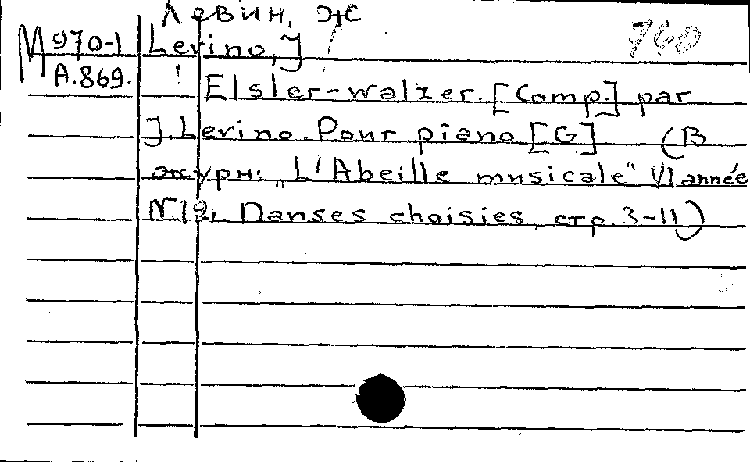 Левин, Ж
М 970-1 Levino, J
А.869. Elsler-walzer. [Comp.] par
J. Levino. Pour piano [G] (В
журн: „L'Abeille musicale" VI année
N12, Danses choisies, стр. 3-11)